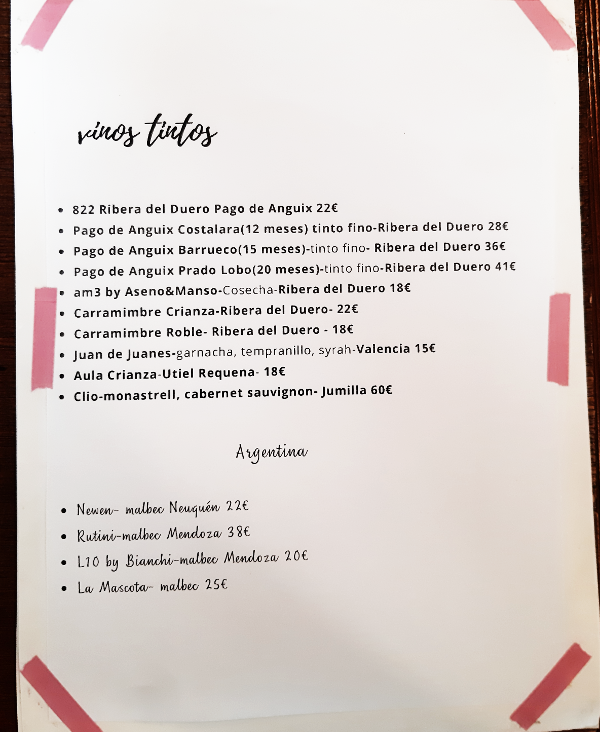 vinos tintos
• 822 Ribera del Duero Pago de Anguix 22€
• Pago de Anguix Costalara(12 meses) tinto fino-Ribera del Duero 28€
• Pago de Anguix Barrueco(15 meses)-tinto fino- Ribera del Duero 36€
• Pago de Anguix Prado Lobo(20 meses)-tinto fino-Ribera del Duero 41€
• am3 by Aseno&Manso-Cosecha-Ribera del Duero 18€
• Carramimbre Crianza-Ribera del Duero- 22€
• Carramimbre Roble- Ribera del Duero - 18€
• Juan de Juanes-garnacha, tempranillo, syrah-Valencia 15€
• Aula Crianza-Utiel Requena- 18€
• Clio-monastrell, cabernet sauvignon- Jumilla 60€
Argentina
• Newen- malbec Neuquén 22€
• Rutini-malbec Mendoza 38€
• L10 by Bianchi-malbec Mendoza 20€
• La Mascota- malbec 25€